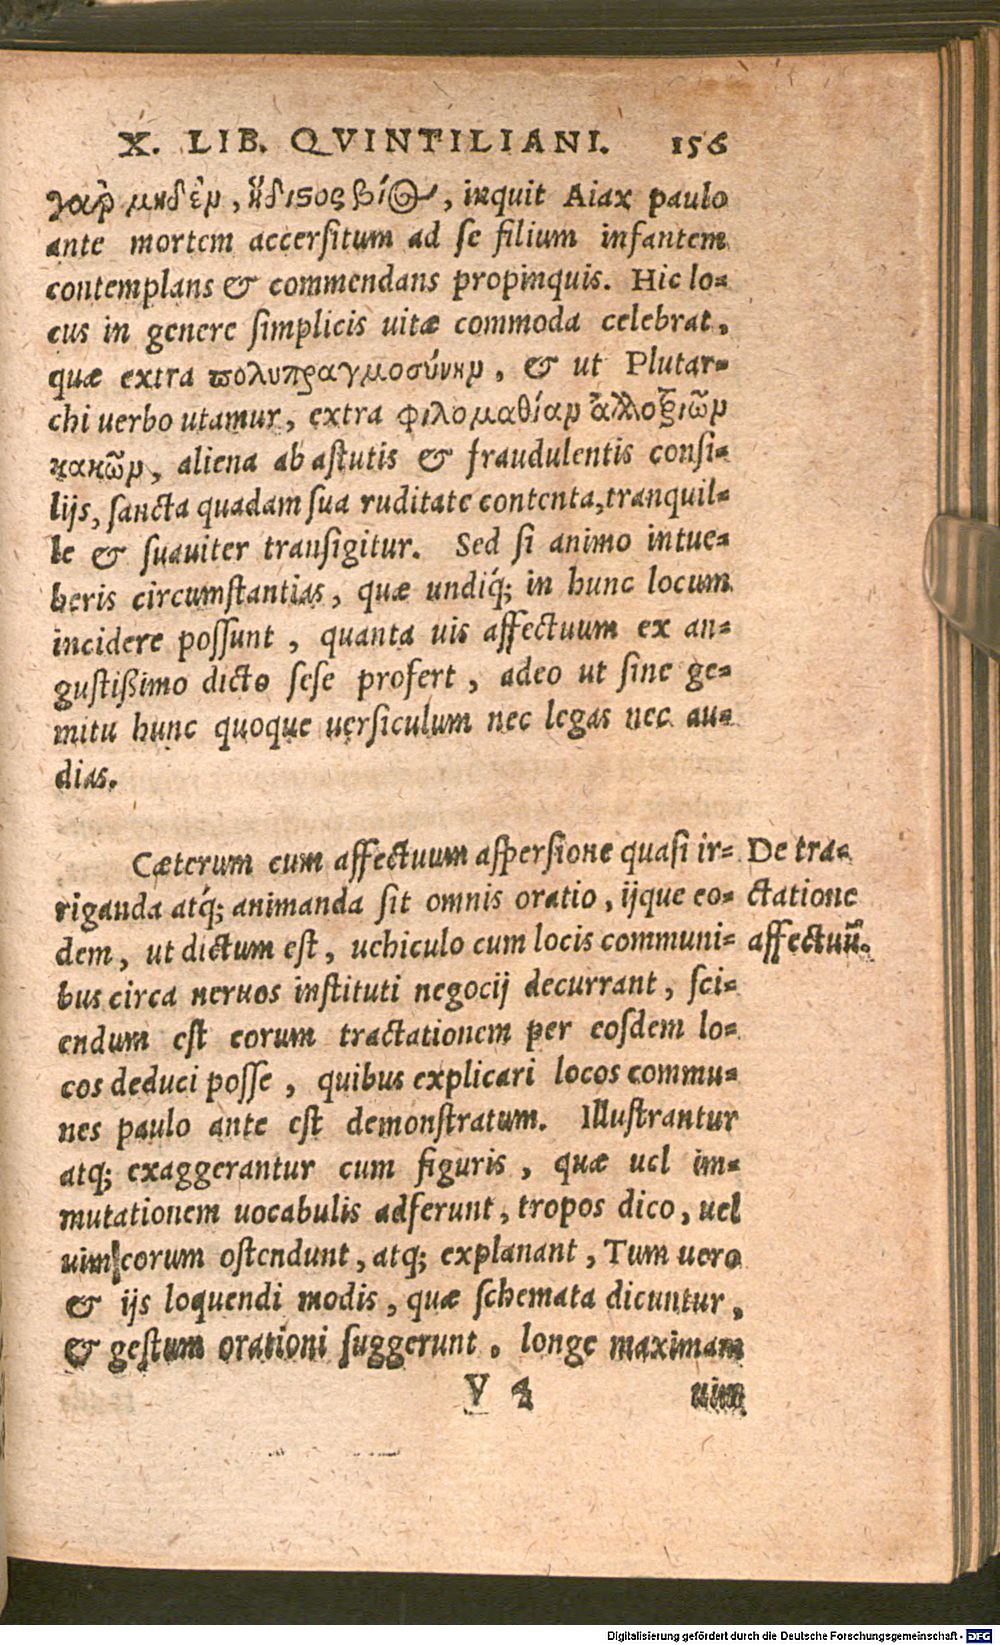 X. LIB. QVINTILIANI. 156
γαρ̀ μηδὲν, ἥδιϛος βίος, inquit Aiax paulo
ante mortem accersitum ad se filium infantem
contemplans & commendans propinquis. Hic lo=
cus in genere simplicis uitæ commoda celebrat,
quæ extra πολυπραγμοσύνην, & ut Plutar=
chi uerbo utamur, extra φιλομαθίαν ἀλλοξιῶν
κακῶν, aliena ab astutis & fraudulentis consi=
lijs, sancta quadam sua ruditate contenta, tranquil=
le & suauiter transigitur. Sed si animo intue=
beris circumstantias, quæ undiq́; in hunc locum
incidere possunt, quanta uis affectuum ex an=
gustißimo dicto sese profert, adeo ut sine ge=
mitu hunc quoque uersiculum nec legas nec au=
dias.
Cæterum cum affectuum aspersione quasi ir= De tra=
riganda atq́; animanda sit omnis oratio, ijque eo= ctatione
dem, ut dictum est, uehiculo cum locis communi= affectuũ.
bus circa neruos instituti negocij decurrant, sci=
endum est eorum tractationem per eosdem lo=
cos deduci posse, quibus explicari locos commu=
nes paulo ante est demonstratum. Illustrantur
atq; exaggerantur cum figuris, quæ uel im=
mutationem uocabulis adferunt, tropos dico, uel
uim eorum ostendunt, atq; explanant, Tum uero
& ijs loquendi modis, quæ schemata dicuntur,
& gestum orationi suggerunt. longe maximam
V 4 uim
Digitalisierung gefördert durch die Deutsche Forschungsgemeinschaft - DFG